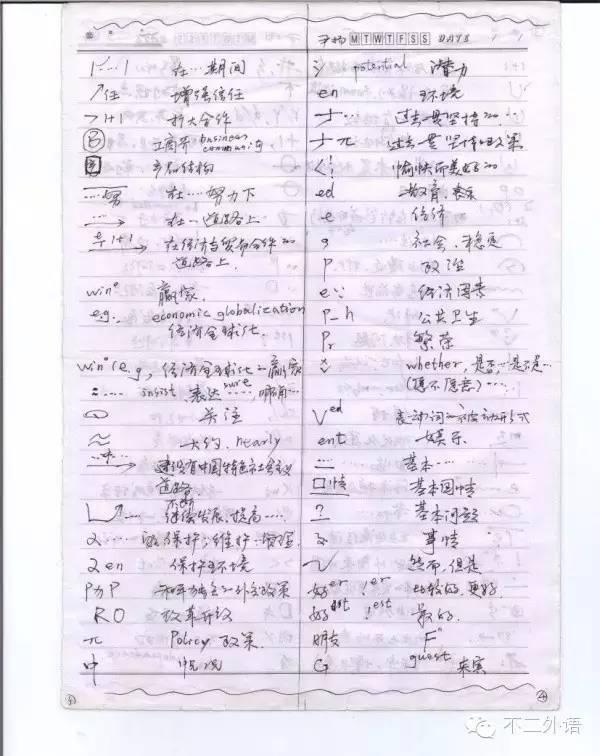 MTWTFSS DAYS
|…| 在…期间
↗任 增强信任
>1+1 扩大合作
Ⓑ 工商界 business community
产品结构
努 在…努力下
在…道路上
1+1 在经济与贸易合作的
道路上.
win° 赢家.
e.g., economic globalization
经济全球化
win°(e.g, 经济全球化的赢家
insist, 表达sure…,明确…
关注
≈ 大约, nearly
建设有中国特色社会主义
道路
不断
继续发展,提高……
保护;维护
2en 保护环境
P和P 和平独立的外交政策
RO 改革开放
π Policy 政策.
中 状况
potential 潜力
en 环境
过去一贯坚持的
π 过去一贯坚持的政策
愉快而美好的
ed 教育,
e 经济
9 社会,稳定
P 政治
e∵ 经济因素
P-h 公共卫生
Pr 繁荣
whether, 是否,是不是…
(愿不愿意)……
Ved 表动词的被动形式
ent 娱乐
基本……
口情 基本国情
? 基本问题
事情
然而,但是
好er !er 比较好,更好
好est !est 最好.
朋友 F°
G guest 来宾
不二外语